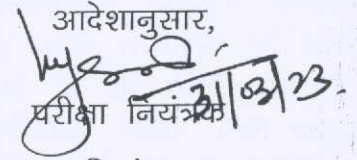 आदेशानुसार,
31/03/23
परीक्षा नियंत्रक